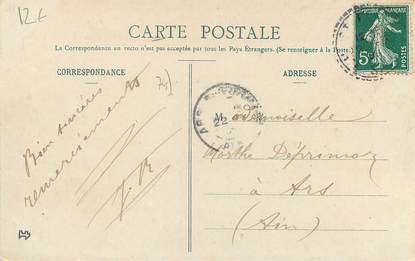 12€
CARTE POSTALE
La Correspondance au recto n'est pas acceptée par tous les Pays Étrangers. (Se renseigner à la Poste.)
CORRESPONDANCE
ADRESSE
FRANÇAISE
5c
POSTES
ARS
22
Bien sincères
remerciements
Mademoiselle
Marthe Déprimoz
à Ars
(Ain)